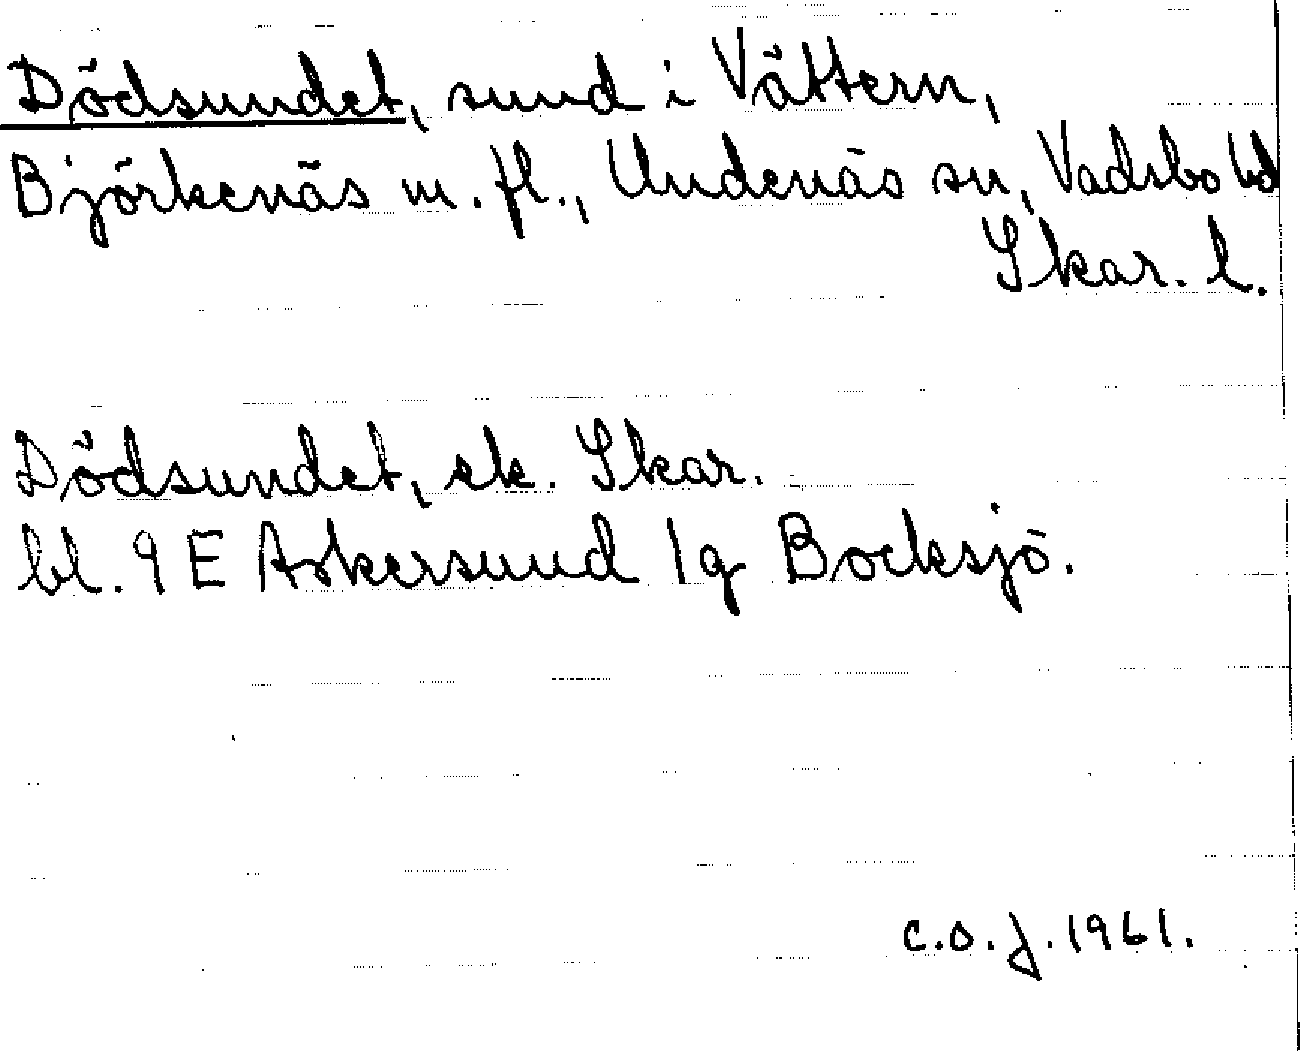 Dödsundet, sund i Vättern,
Björkenäs m. fl., Undenäs sn, Vadsbo hd
Skar. l.
Dödsundet, ek. Skar.
bl. 9 E Askersund 1g Bocksjö.
C.O.J. 1961.